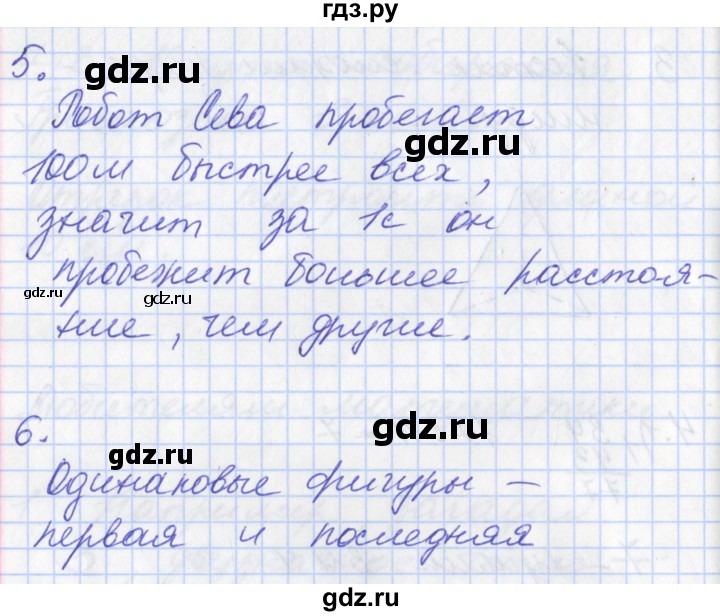 гдз.ру
5.
gdz.ru
Робот Сева пробегает
gdz.ru
100м быстрее всех,
значит за 1с он
пробежит большее расстоя-
gdz.ru
gdz.ru
ние, чем другие.
gdz.ru
6.
gdz.ru
gdz.ru
Одинаковые фигуры –
первая и последняя
gdz.ru
gdz.ru